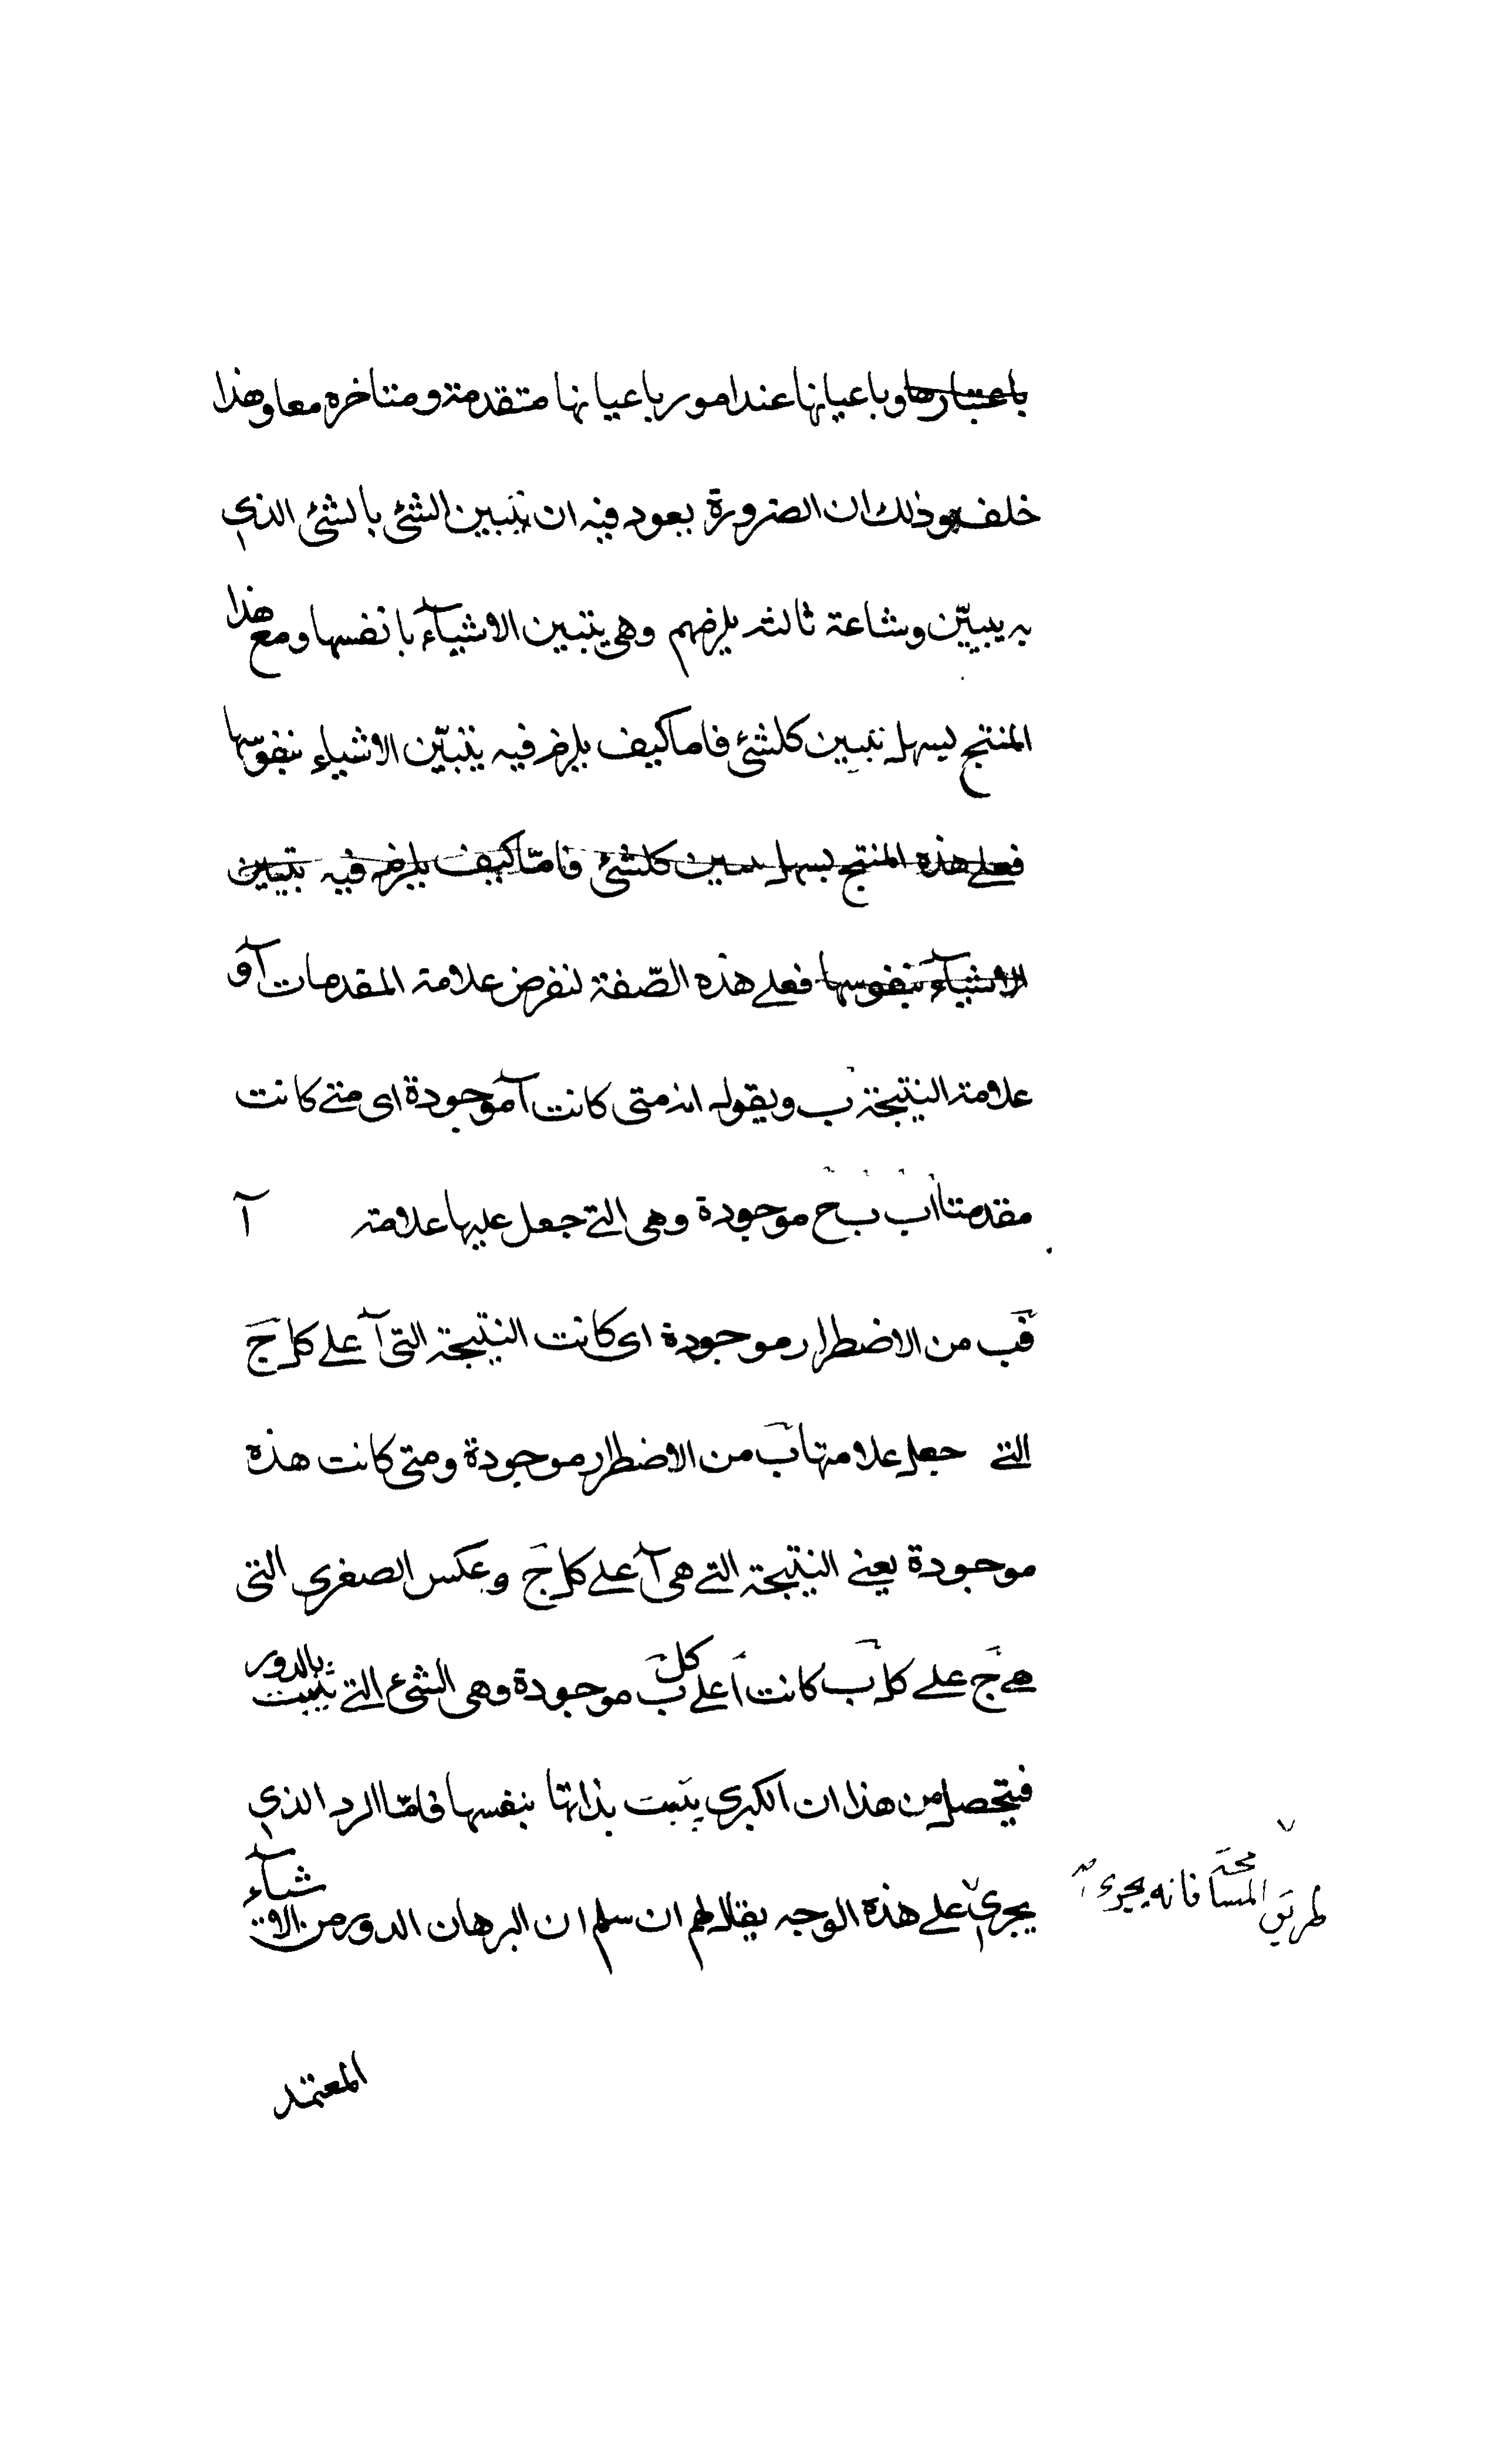 باعتبارها وباعيانها عند امور باعيانها متقدمة ومتاخره معا وهذا
خلف وذلك ان الضرورة يعود فيه ان تبيين الشئ بالشئ الذي
به يبيّن وشاعة ثالثه يلزمهم وهي يتبين الاشيآء بانفسها ومع هذا
المنتج ليسهل تبيين كلشئ فاما كيف يلزم فيه يتبيّن الاشياء بنفوسها
فعلى هذه المنتج ليسهل تبيين كلشئ فامّا كيف يلزم فيه يتبيين
الاشيآء بنفوسها فعلى هذه الصّفة لنفرض علامة المقدمات آ و
علامة النتيجة ب ويقول انه متى كانت آ موجودة اى متى كانت
مقدمتا اب بج موجودة وهي التي جعل عليها علامة آ
فب من الاضطرار موجودة اى كانت النتيجة التى آ على كل ج
التي جعل علامتها ب من الاضطرار موجودة ومتى كانت هذه
موجودة يعني النتيجة التي هي آ على كل ج وعكس الصغرى التى
هي ج على كل ب كانت ا على كل ب موجودة وهي الشئ التي تثبت بالدور
فيتحصل من هذا ان الكبرى يثبت بذاتها بنفسها فامّا الرد الذي
يجرى على هذه الوجه يقال لهم ان سلم ان البرهان الدور من الاشيآء
طريق المسامحة فانه يجرى
المعتمد